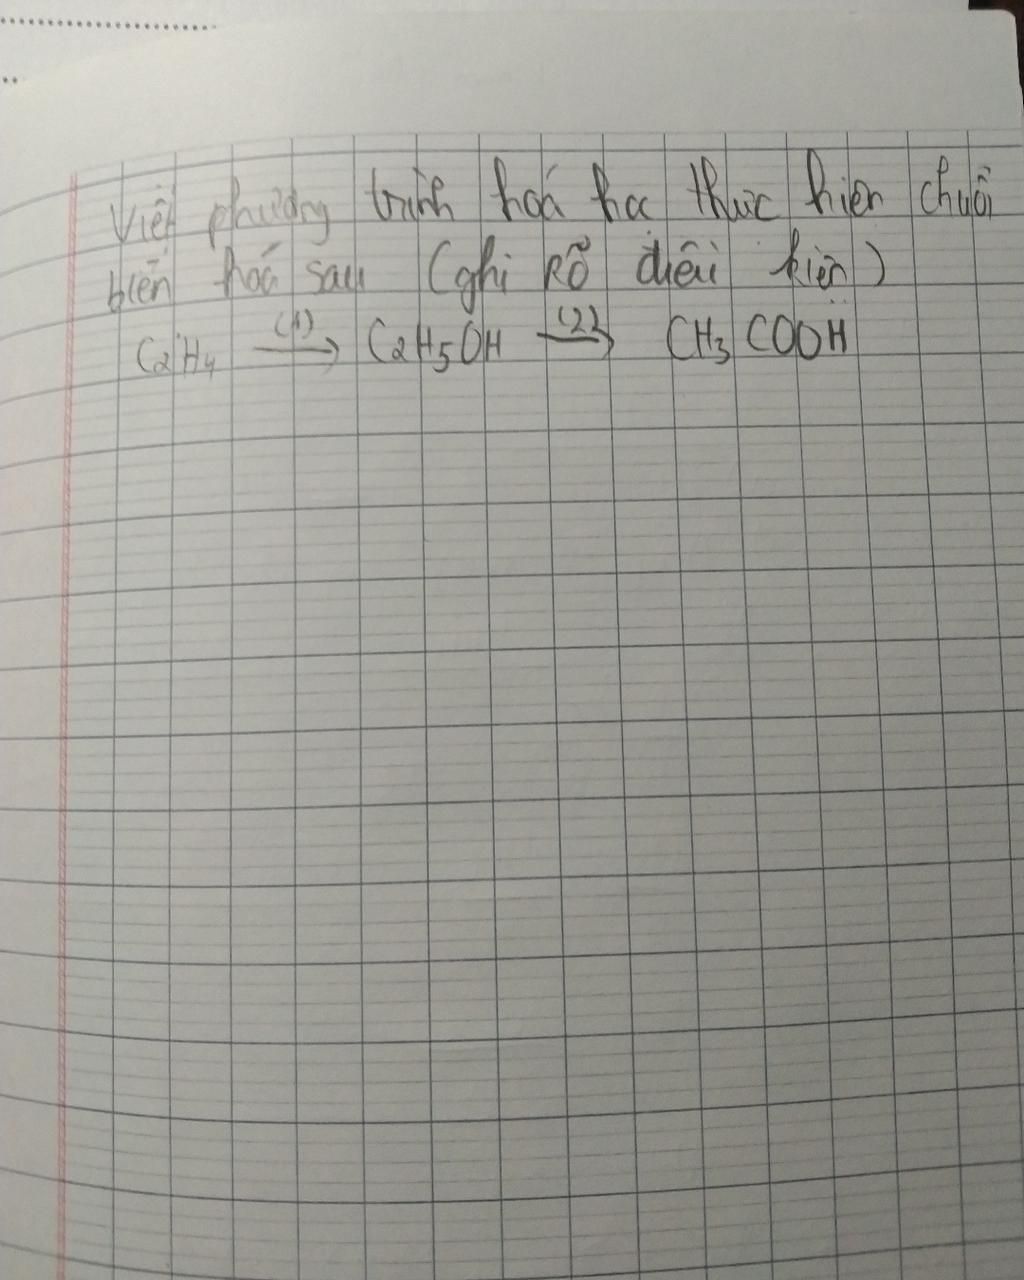 Viết phương trình hoá học thực hiện chuỗi
biến hoá sau (ghi Rõ điều kiện)
C2H4 (1)→ C2H5OH (2)→ CH3COOH